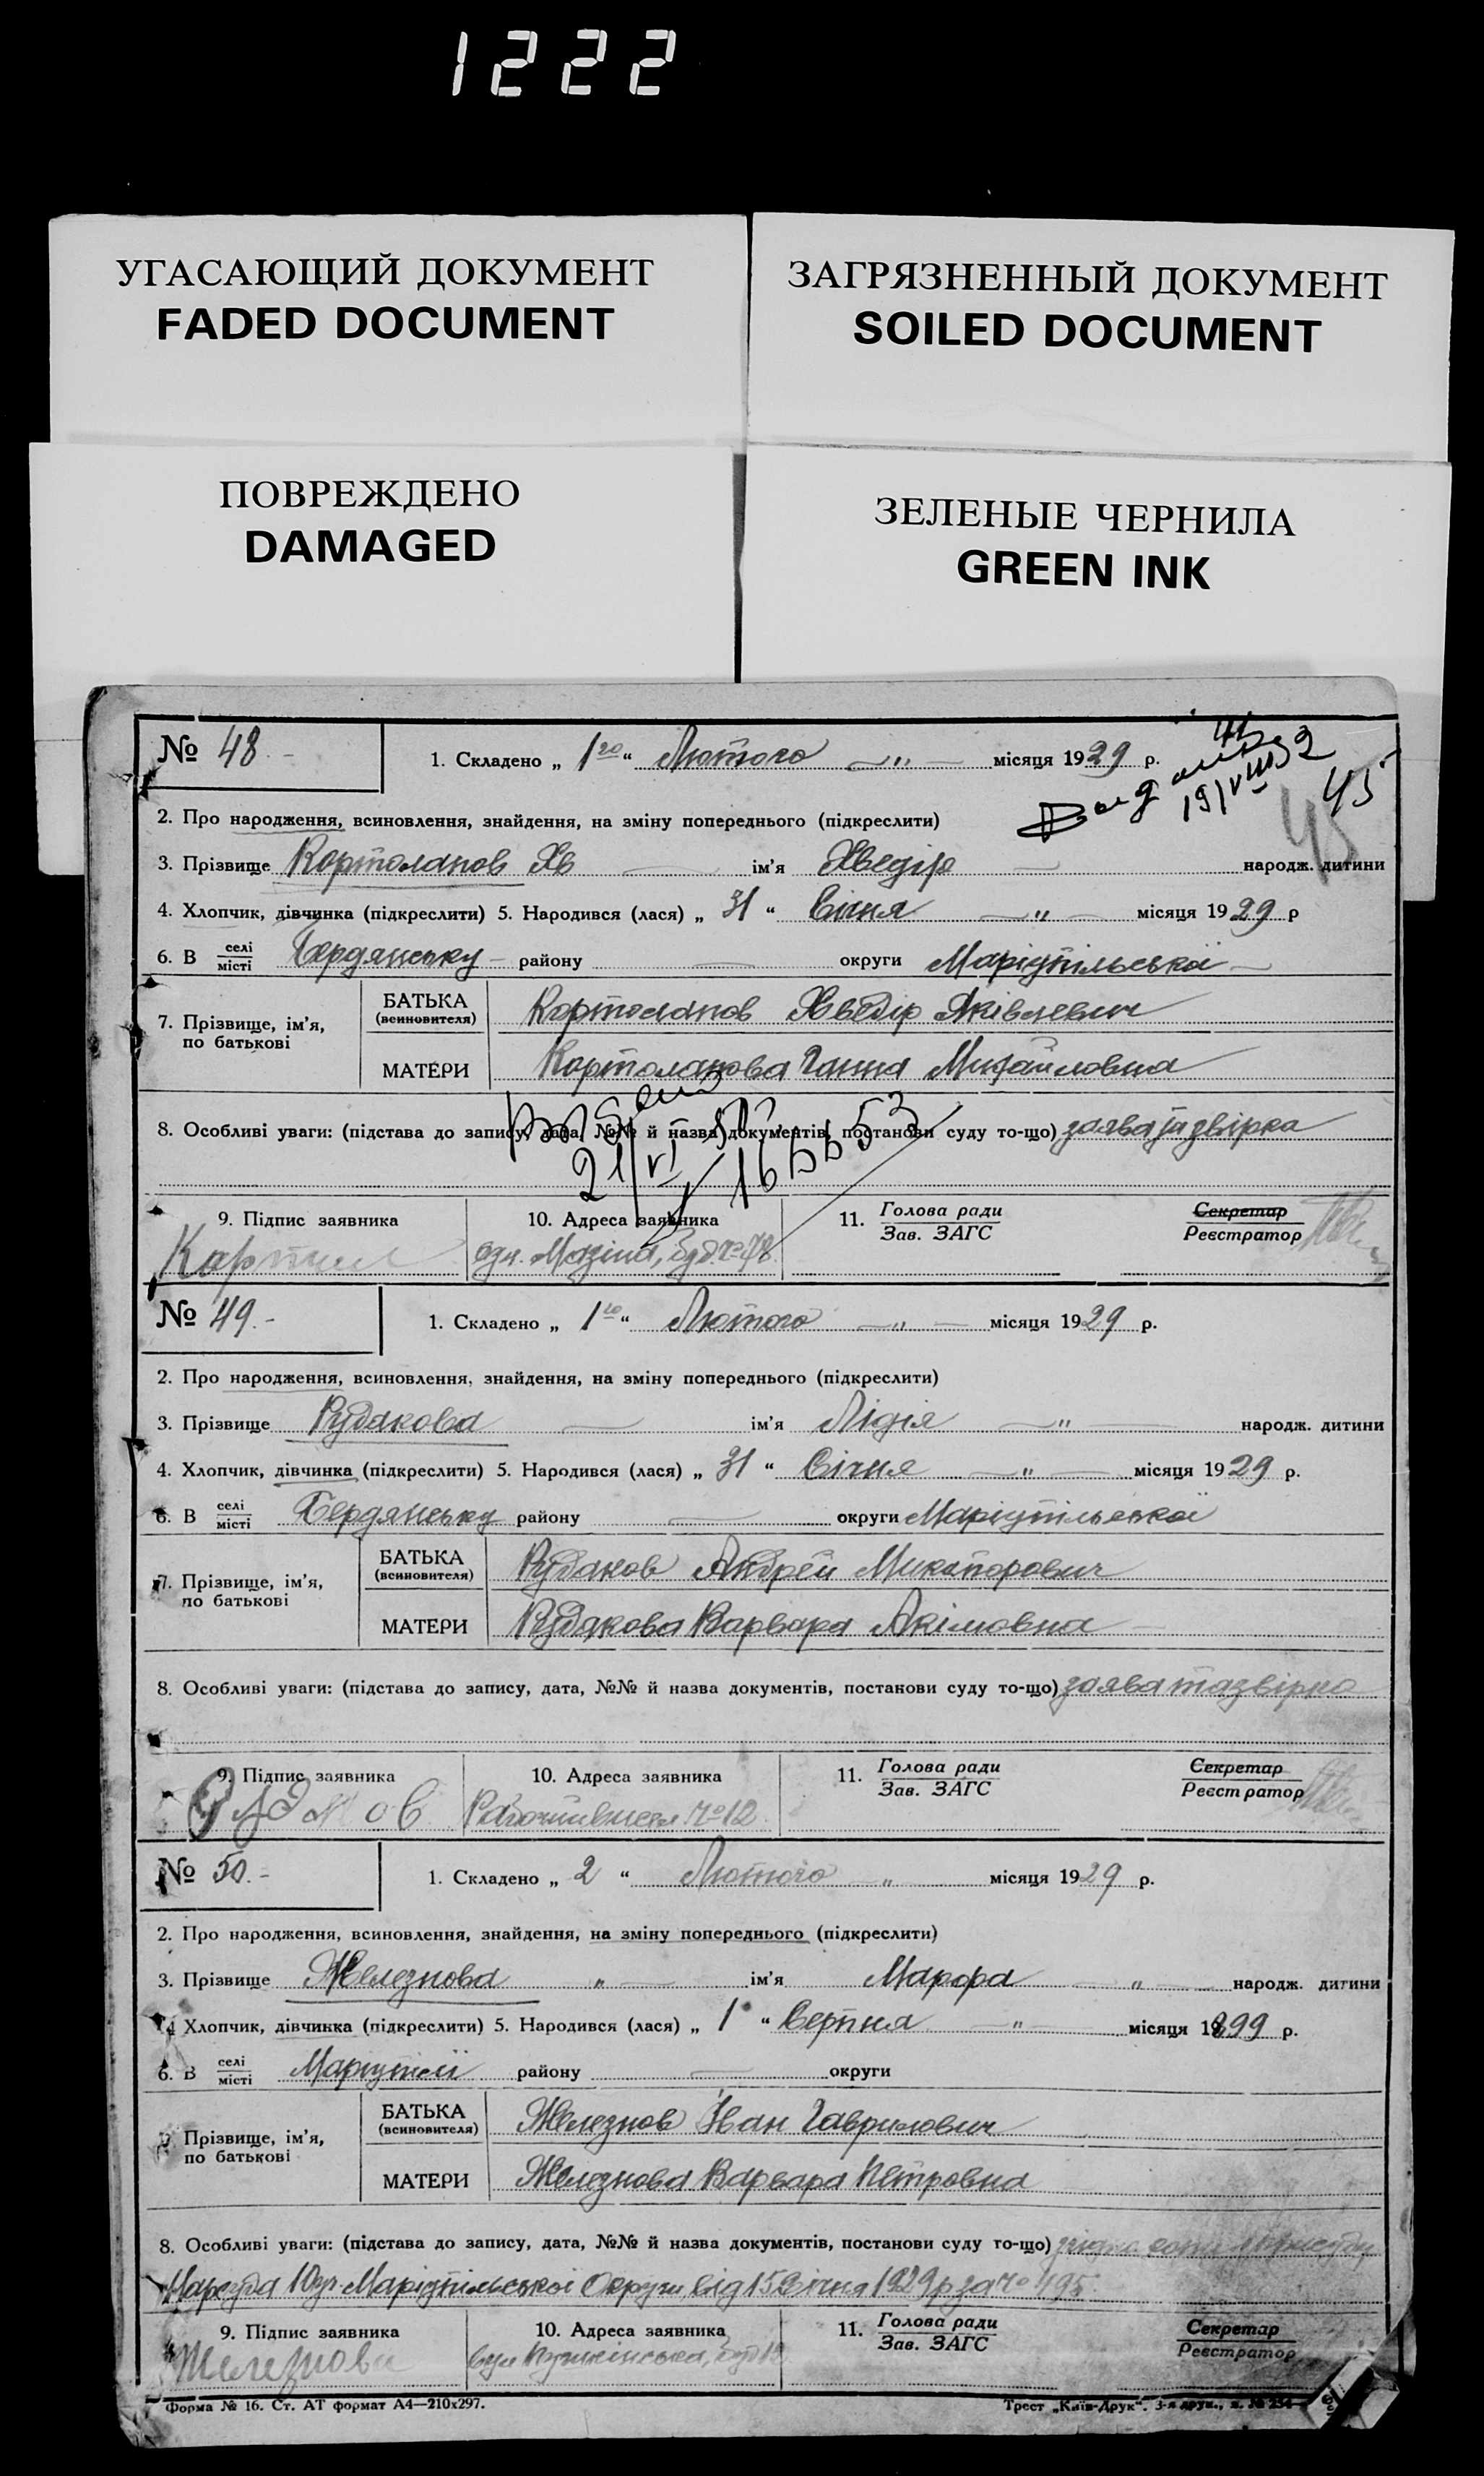 1222
УГАСАЮЩИЙ ДОКУМЕНТ
FADED DOCUMENT
ЗАГРЯЗНЕННЫЙ ДОКУМЕНТ
SOILED DOCUMENT
ПОВРЕЖДЕНО
DAMAGED
ЗЕЛЕНЫЕ ЧЕРНИЛА
GREEN INK
№ 48.- 1. Складено „ 1го “ Лютого —"— місяця 1929 р.
45
45
2. Про народження, всиновлення, знайдення, на зміну попереднього (підкреслити)
3. Прізвище Кортоланов Хв — ім'я Хведір — народж. дитини
4. Хлопчик, дівчинка (підкреслити) 5. Народився (лася) „ 31 “ Січня —"— місяця 1929 р
6. В селі/місті Бердянську — району — округи Маріупільська —
7. Прізвище, ім'я, по батькові
БАТЬКА (всиновителя) Кортоланов Хведір Яківлевич
МАТЕРИ Кортоланова Ганна Михайловна
8. Особливі уваги: (підстава до запису, дата, №№ й назва документів, постанови суду то-що) заява та звірка
21/VI
9. Підпис заявника
10. Адреса заявника
11. Голова ради/Зав. ЗАГС Секретар/Реєстратор
№ 49.- 1. Складено „ 1го “ Лютого —"— місяця 1929 р.
2. Про народження, всиновлення, знайдення, на зміну попереднього (підкреслити)
3. Прізвище Рудакова — ім'я Лідія —"— народж. дитини
4. Хлопчик, дівчинка (підкреслити) 5. Народився (лася) „ 31 “ Січня —"— місяця 1929 р.
6. В селі/місті Бердянську району — округи Маріупільської
7. Прізвище, ім'я, по батькові
БАТЬКА (всиновителя) Рудаков Андрей Микаторович
МАТЕРИ Рудакова Варвара Акімовна —
8. Особливі уваги: (підстава до запису, дата, №№ й назва документів, постанови суду то-що) заява та звірка
9. Підпис заявника
10. Адреса заявника
№ 12
11. Голова ради/Зав. ЗАГС Секретар/Реєстратор
№ 50.- 1. Складено „ 2 “ Лютого " місяця 1929 р.
2. Про народження, всиновлення, знайдення, на зміну попереднього (підкреслити)
3. Прізвище Железнова "— ім'я Марфа —"— народж. дитини
4. Хлопчик, дівчинка (підкреслити) 5. Народився (лася) „ 1 “ Серпня —"— місяця 1899 р.
6. В селі/місті Маріупілі району — округи
7. Прізвище, ім'я, по батькові
БАТЬКА (всиновителя) Железнов Іван Гаврилович
МАТЕРИ Железнова Варвара Петровна
8. Особливі уваги: (підстава до запису, дата, №№ й назва документів, постанови суду то-що) згідно
Нарсуда Маріупільської Округи від 15 Січня 1929 р за № 495.
9. Підпис заявника
Железнова
10. Адреса заявника
вул
11. Голова ради/Зав. ЗАГС Секретар/Реєстратор
Форма № 16. Ст. АТ формат А4—210x297.
Трест „Київ-Друк“. 3-я друк.,